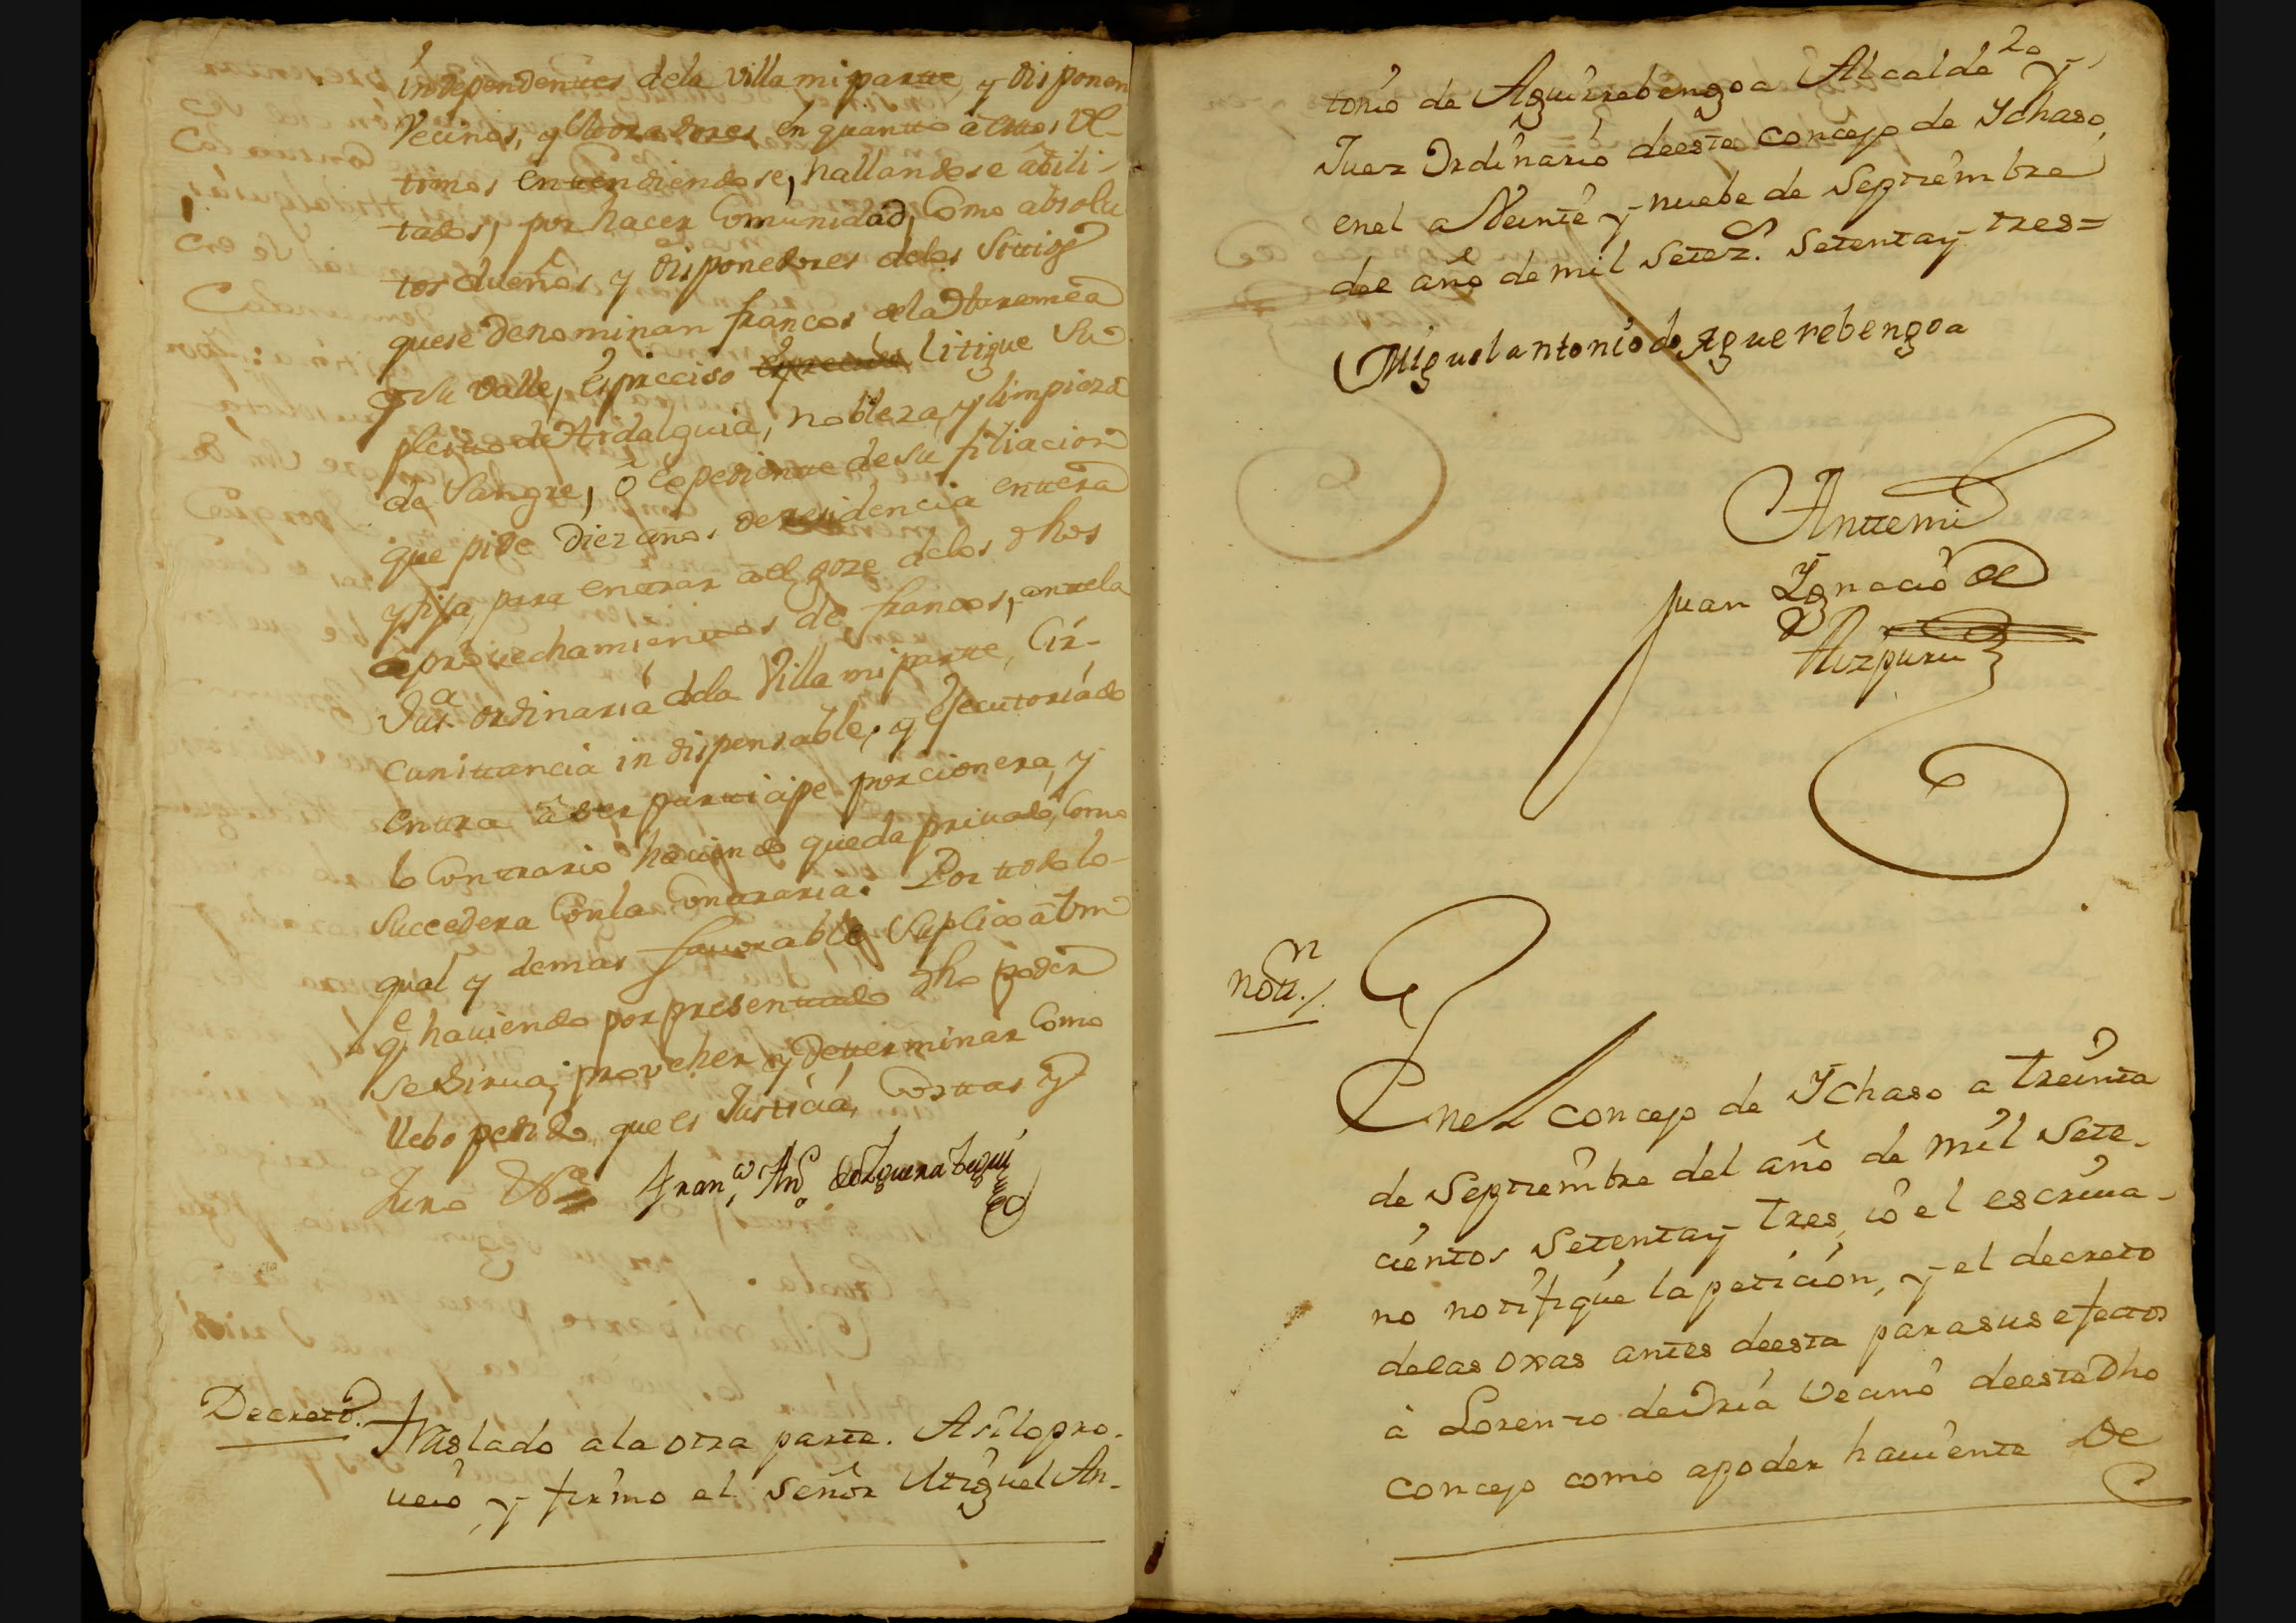 independentes dela Villa mi parte, y disponen
Vecinos, y Moradores en quanto à estos Vl-
timos entendiendose, hallandose abili-
tados, por hacer Comunidad, Como absolu
tos dueños y disponedores delos Sitios
que se denominan francos dela
y Su Valle, es preciso litigue Su
pleito de Hidalguia, nobleza, y limpieza
de Sangre, ò Expediente de su filiacion
que pide diez años de residencia entera
y fija, para entrar àel goze delos dhos
aprovechamientos de francos, ante la
Jusª ordinaria dela Villa mi parte, Cir-
cunstancia indispensable, y Executoriado
entra à ser participe porcionera, y
lo Contrario haciendo queda privado, Como
Succedera Con la Contraria. Por todo lo-
qual y demas favorable Suplico à Vm
qe haviendo por presentado dho poder
se Sirva, proveher y determinar Como
llebo pedido, que es Justicia, Costas y
Juro Nº Franco Anº de Izquenategui
Decreto. Traslado ala otra parte. Asilo pro-
ueio, y firmo el Señor Miguel An-
tonio de Aguirrebengoa Alcalde 2o y
Juez Ordinario deeste concejo de Ychaso,
enel a Veinte y nuebe de Septiembre
del año de mil Setez. Setenta y tres=
Miguel antonio de Aguerebengoa
Antemi
Juan Ygnacio de
Aizpuru
notn./.
Enel concejo de Ychaso a treinta
de Septiembre del año de mil Sete-
cientos Setenta y tres, io el escriua-
no notifique la peticion, y el decreto
delas oxas antes deesta para sus efectos
à Lorenzo de Vria Vecino deeste Dho
concejo como apoder hauiente De